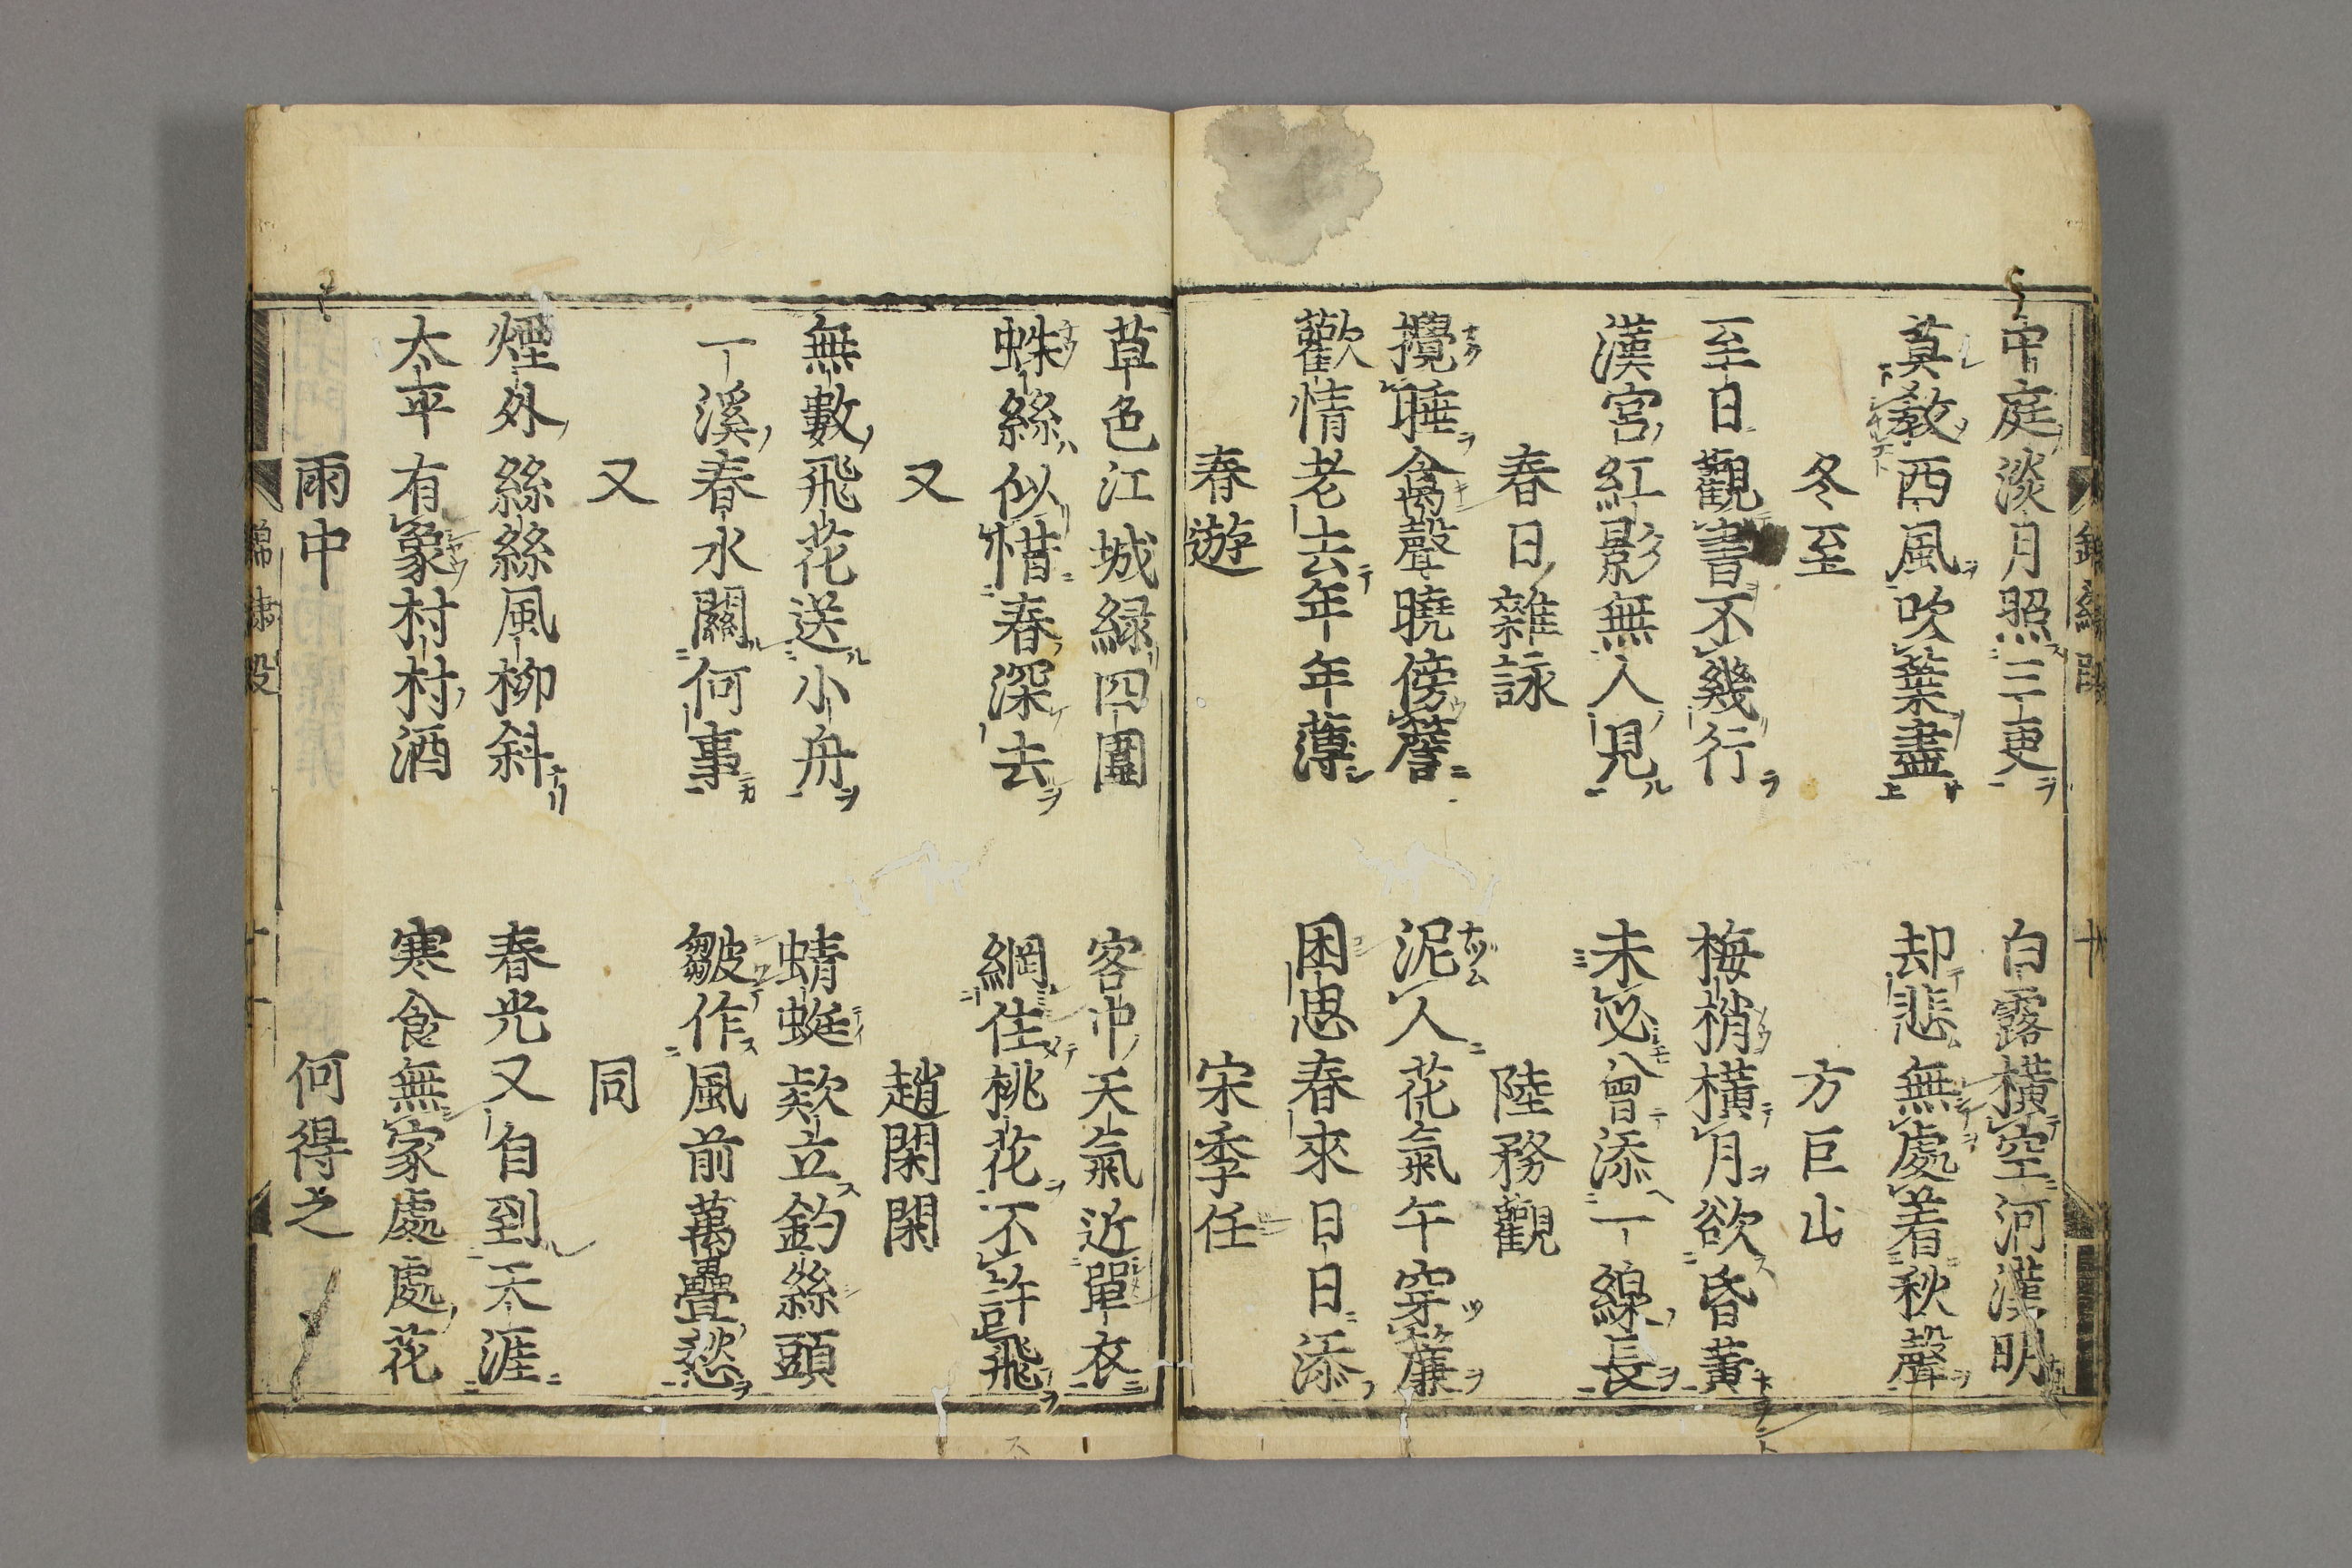 中庭淡月照三更　白露横空河漢明
莫教西風吹葉盡　却悲無處着秋聲
冬至　方巨山
至日觀書不幾行　梅梢横月欲昏黃
漢宮紅影無人見　未必曾添一線長
春日雜詠　陸務觀
攪睡禽聲曉傍簷　泥人花氣午穿簾
歡情老去年年薄　困思春來日日添
春遊　宋季任
草色江城緑四圍　客中天氣近單衣
蛛絲似惜春深去　網住桃花不許飛
又　趙閑閑
無數飛花送小舟　蜻蜓欵立釣絲頭
一溪春水關何事　皺作風前萬疊愁
又　同
煙外絲絲風柳斜　春光又自到天涯
太平有象村村酒　寒食無家處處花
雨中　何得之
錦繡段